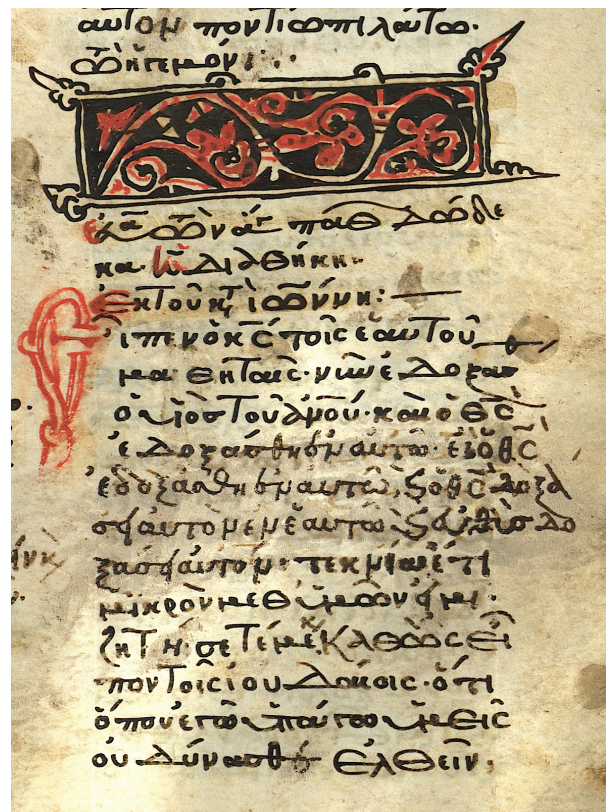 αυτον ποντίω πιλάτω·
τῶ ἡγεμόνι:··
δώδε
κα· διαθήκη·
Ἐκ τοῦ κτ ἰωάννην:
εἶπεν ὁ κς τοῖς ἑαυτοῦ
μαθηταῖς· νῦν ἐδοξασ
ὁ υἱὸς τοῦ ἀνου· καὶ ὁ θς
ἐδοξάσθη ἐν αυτῶ· εἰ ὁ θς
ἐδοξάσθη ἐν αυτῶ, ϗ ὁ θς δοξά
σει αυτὸν ἐν ἑαυτῶ ϗ ευθὺς δο
ξάσει αυτόν· τεκνία ἔτι
μικρὸν μεθ ὑμῶν εἰμι·
ζητήσετέ με, ϗ καθὼς εἶ
πον τοῖς ἰουδαίοις· ὅτι
ὅπου ἐγὼ ὑπάγω ὑμεῖς
ου δύνασθε ἐλθεῖν,